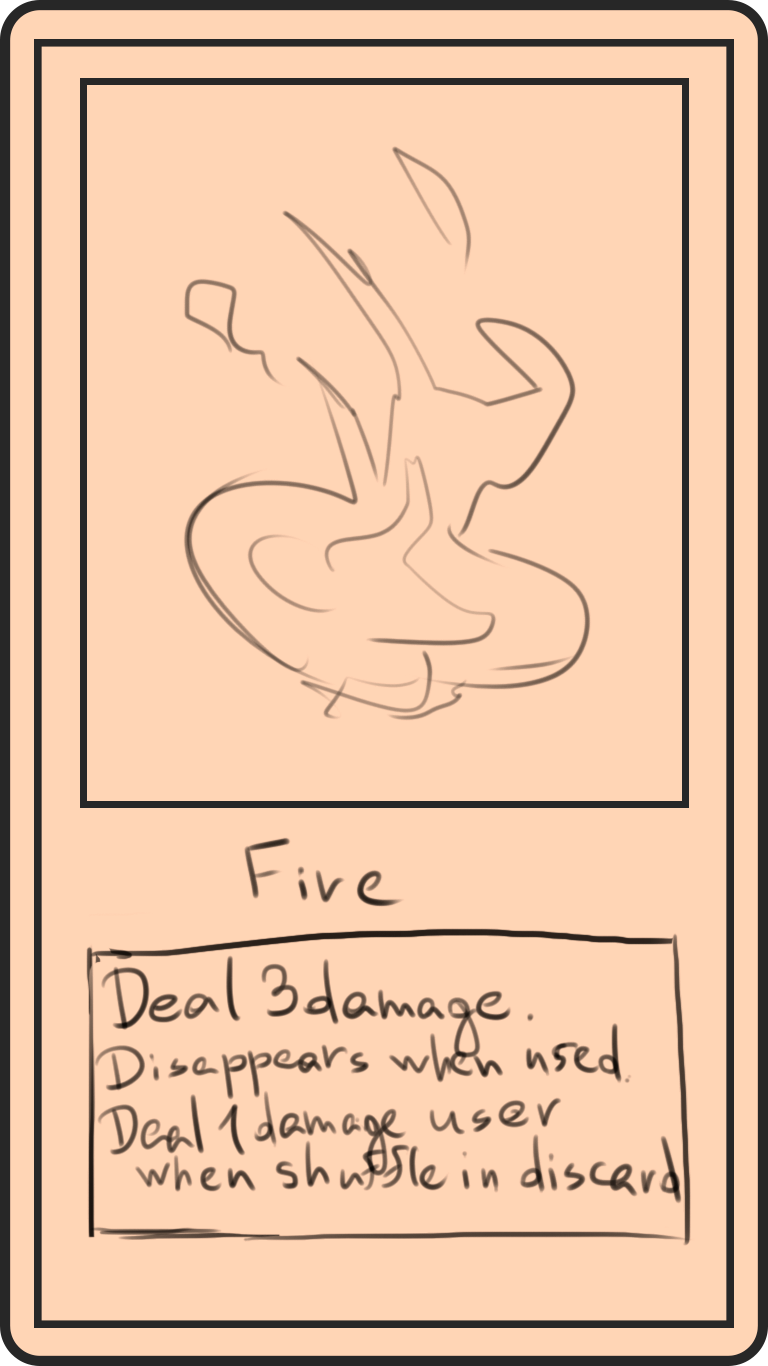 Fire
Deal 3 damage.
Disappears when used.
Deal 1 damage user
when shuffle in discard